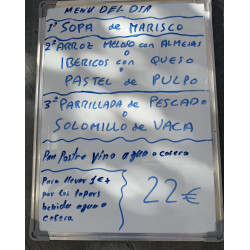 MENU DEL DIA
1º SOPA de MARISCO
2º ARROZ MELOSO con ALMEJAS
o
IBERICOS con QUESO
o
PASTEL de PULPO
3º PARRILLADA de PESCADO
o
SOLOMILLO de VACA
Pan Postre Vino agua o casera
Para llevar 1€+
por los tapers
bebida agua o
casera
22€